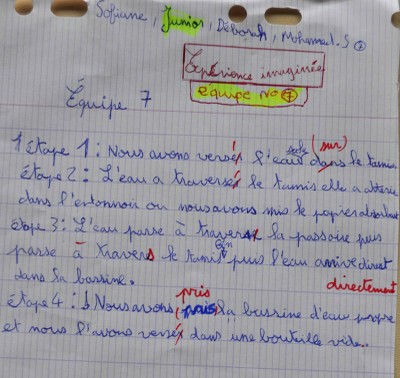 Sofiane, Junior, Déborah, Mohamed.S
Expérience imaginée
équipe No 7
Équipe 7
(sur)
Étape 1 : Nous avons versé l'eau dans le tamis
étape 2 : L'eau a traversé le tamis elle a atterie
dans l'entonnoir ou nous avons mis le papier absorbant
étape 3 : L'eau passe à travers la passoire puis
passe à travers le tamis puis l'eau arrive direct
directement
dans la bassine.
pris
étape 4 : Nous avons pris la bassine d'eau propre
et nous l'avons versé dans une bouteille vide.